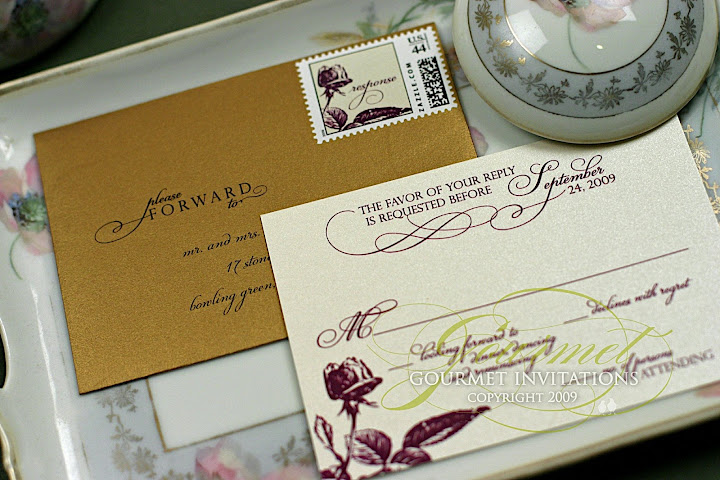 U.S. 44
response
ZAZZLE.COM
please
FORWARD
to:
mr. and mrs.
17 stone
bowling green,
THE FAVOR OF YOUR REPLY
IS REQUESTED BEFORE
September
24, 2009
M
declines with regret
looking forward to
dinner, dancing
and reminiscing
of persons
ATTENDING
Gourmet
GOURMET INVITATIONS
COPYRIGHT 2009